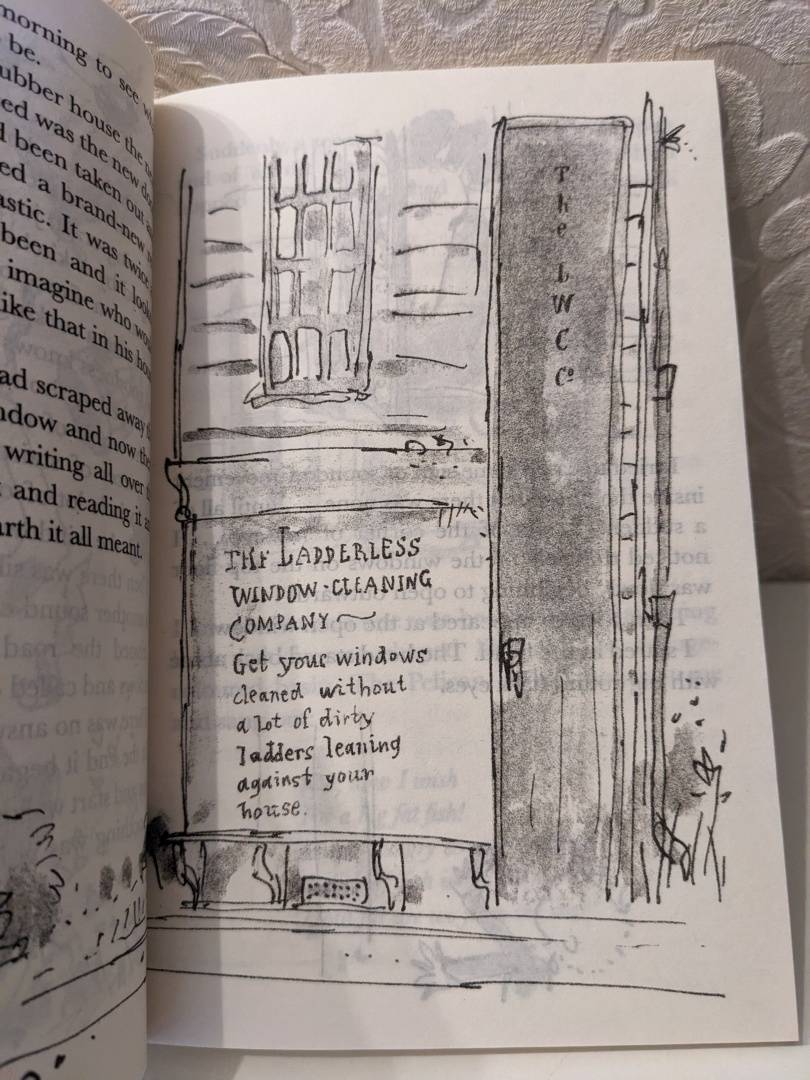 morning to see
be.
ubber house the
ed was the new
been taken out
ed a brand-new
astic. It was twice
been and it
imagine who
like that in his
ad scraped away
ndow and now
writing all over
and reading it
arth it all meant.
The L W C Co
THE LADDERLESS
WINDOW-CLEANING
COMPANY
Get your windows
cleaned without
a lot of dirty
ladders leaning
against your
house.